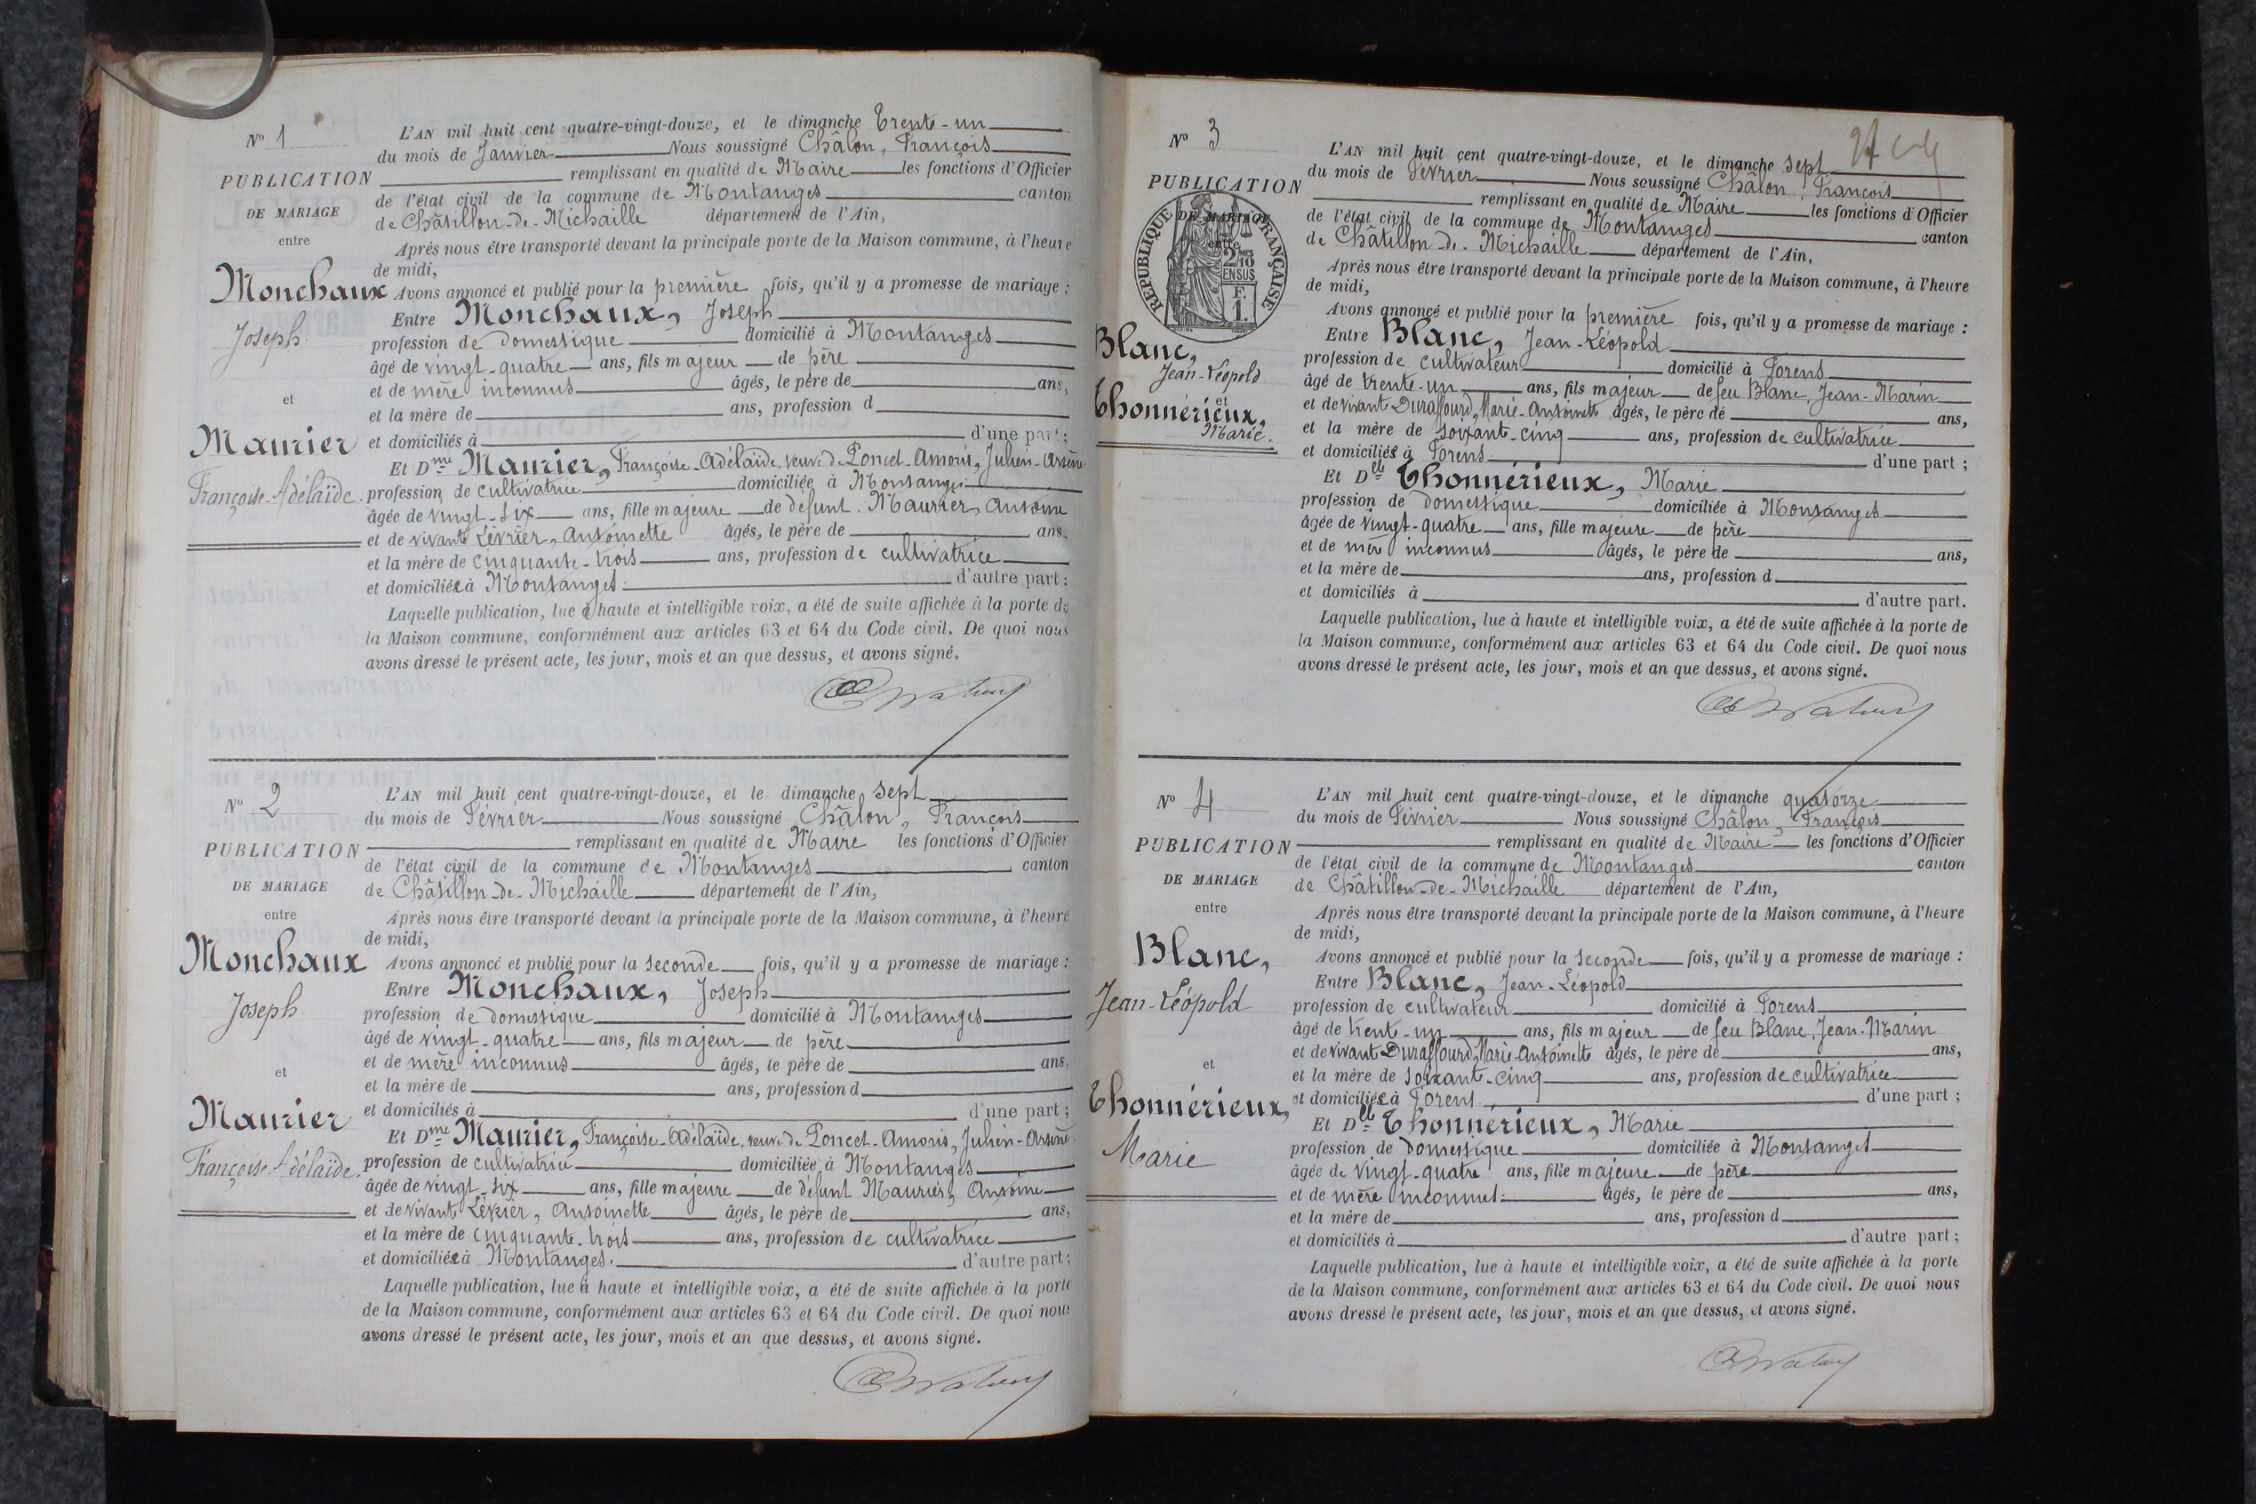 Nº 1
PUBLICATION
DE MARIAGE
entre
Monchaux
Joseph
et
Maurier
Françoise-Adélaïde.
L'AN mil huit cent quatre-vingt-douze, et le dimanche trente-un
du mois de Janvier Nous soussigné Châlon, François
remplissant en qualité de Maire les fonctions d'Officier
de l'état civil de la commune de Montanges canton
de Châtillon-de-Michaille département de l'Ain,
Après nous être transporté devant la principale porte de la Maison commune, à l'heure
de midi,
Avons annoncé et publié pour la première fois, qu'il y a promesse de mariage :
Entre Monchaux, Joseph
profession de domestique domicilié à Montanges
âgé de vingt-quatre ans, fils majeur de père
et de mère inconnus âgés, le père de ans,
et la mère de ans, profession d
et domiciliés à d'une part ;
Et Dme Maurier, Françoise-Adélaïde, veuve de Poncet-Amoris, Julien-Arsène
profession de cultivatrice domiciliée à Montanges
âgée de vingt-six ans, fille majeure de défunt Maurier, Antoine
et de vivante Lévrier, Antoinette âgés, le père de ans,
et la mère de cinquante-trois ans, profession de cultivatrice
et domiciliée à Montanges. d'autre part ;
Laquelle publication, lue à haute et intelligible voix, a été de suite affichée à la porte de
la Maison commune, conformément aux articles 63 et 64 du Code civil. De quoi nous
avons dressé le présent acte, les jour, mois et an que dessus, et avons signé.
Nº 2
PUBLICATION
DE MARIAGE
entre
Monchaux
Joseph
et
Maurier
Françoise-Adélaïde.
L'AN mil huit cent quatre-vingt-douze, et le dimanche sept
du mois de Février Nous soussigné Châlon, François
remplissant en qualité de Maire les fonctions d'Officier
de l'état civil de la commune de Montanges canton
de Châtillon-de-Michaille département de l'Ain,
Après nous être transporté devant la principale porte de la Maison commune, à l'heure
de midi,
Avons annoncé et publié pour la seconde fois, qu'il y a promesse de mariage :
Entre Monchaux, Joseph
profession de domestique domicilié à Montanges
âgé de vingt-quatre ans, fils majeur de père
et de mère inconnus âgés, le père de ans,
et la mère de ans, profession d
et domiciliés à d'une part ;
Et Dme Maurier, Françoise-Adélaïde, veuve de Poncet-Amoris, Julien-Arsène
profession de cultivatrice domiciliée à Montanges
âgée de vingt-six ans, fille majeure de défunt Maurier, Antoine
et de vivante Lévrier, Antoinette âgés, le père de ans,
et la mère de cinquante-trois ans, profession de cultivatrice
et domiciliée à Montanges. d'autre part ;
Laquelle publication, lue à haute et intelligible voix, a été de suite affichée à la porte
de la Maison commune, conformément aux articles 63 et 64 du Code civil. De quoi nous
avons dressé le présent acte, les jour, mois et an que dessus, et avons signé.
Nº 3
PUBLICATION
DE MARIAGE
entre
RÉPUBLIQUE FRANÇAISE
2/10
EN SUS
F.
1.
Blanc,
Jean-Léopold
et
Thonnérieux,
Marie.
L'AN mil huit cent quatre-vingt-douze, et le dimanche sept
du mois de Février Nous soussigné Châlon, François
remplissant en qualité de Maire les fonctions d'Officier
de l'état civil de la commune de Montanges canton
de Châtillon-de-Michaille département de l'Ain,
Après nous être transporté devant la principale porte de la Maison commune, à l'heure
de midi,
Avons annoncé et publié pour la première fois, qu'il y a promesse de mariage :
Entre Blanc, Jean-Léopold
profession de cultivateur domicilié à Forens
âgé de trente-un ans, fils majeur de feu Blanc, Jean-Marin
et de vivante Duraffourd, Marie-Antoinette âgés, le père de ans,
et la mère de soixante-cinq ans, profession de cultivatrice
et domiciliée à Forens d'une part ;
Et Dlle Thonnérieux, Marie
profession de domestique domiciliée à Montanges
âgée de vingt-quatre ans, fille majeure de père
et de mère inconnus âgés, le père de ans,
et la mère de ans, profession d
et domiciliés à d'autre part.
Laquelle publication, lue à haute et intelligible voix, a été de suite affichée à la porte de
la Maison commune, conformément aux articles 63 et 64 du Code civil. De quoi nous
avons dressé le présent acte, les jour, mois et an que dessus, et avons signé.
Nº 4
PUBLICATION
DE MARIAGE
entre
Blanc,
Jean-Léopold
et
Thonnérieux,
Marie
L'AN mil huit cent quatre-vingt-douze, et le dimanche quatorze
du mois de Février Nous soussigné Châlon, François
remplissant en qualité de Maire les fonctions d'Officier
de l'état civil de la commune de Montanges canton
de Châtillon-de-Michaille département de l'Ain,
Après nous être transporté devant la principale porte de la Maison commune, à l'heure
de midi,
Avons annoncé et publié pour la seconde fois, qu'il y a promesse de mariage :
Entre Blanc, Jean-Léopold
profession de cultivateur domicilié à Forens
âgé de trente-un ans, fils majeur de feu Blanc, Jean-Marin
et de vivante Duraffourd, Marie-Antoinette âgés, le père de ans,
et la mère de soixante-cinq ans, profession de cultivatrice
et domiciliée à Forens. d'une part ;
Et Dlle Thonnérieux, Marie
profession de domestique domiciliée à Montanges
âgée de vingt-quatre ans, fille majeure de père
et de mère inconnus. âgés, le père de ans,
et la mère de ans, profession d
et domiciliés à d'autre part ;
Laquelle publication, lue à haute et intelligible voix, a été de suite affichée à la porte
de la Maison commune, conformément aux articles 63 et 64 du Code civil. De quoi nous
avons dressé le présent acte, les jour, mois et an que dessus, et avons signé.